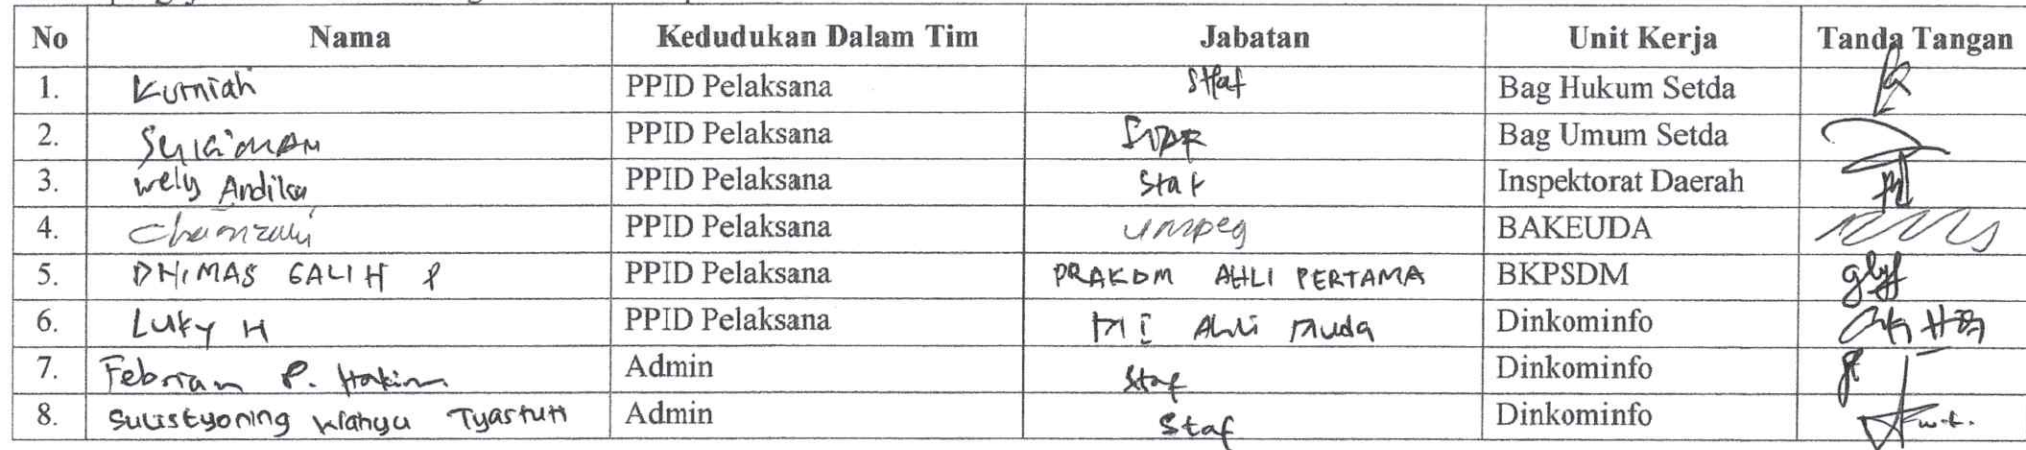 No Nama Kedudukan Dalam Tim Jabatan Unit Kerja Tanda Tangan
1. Kurniah PPID Pelaksana Staf Bag Hukum Setda
2. Sulaiman PPID Pelaksana Bag Umum Setda
3. Wely Andika PPID Pelaksana Staf Inspektorat Daerah
4. PPID Pelaksana umpeg BAKEUDA
5. DHIMAS GALIH P PPID Pelaksana PRAKOM AHLI PERTAMA BKPSDM
6. LUKY H PPID Pelaksana Ahli Muda Dinkominfo
7. Febrian P. Hakim Admin Staf Dinkominfo
8. Sulistyoning Wahyu Tyastuti Admin Staf Dinkominfo